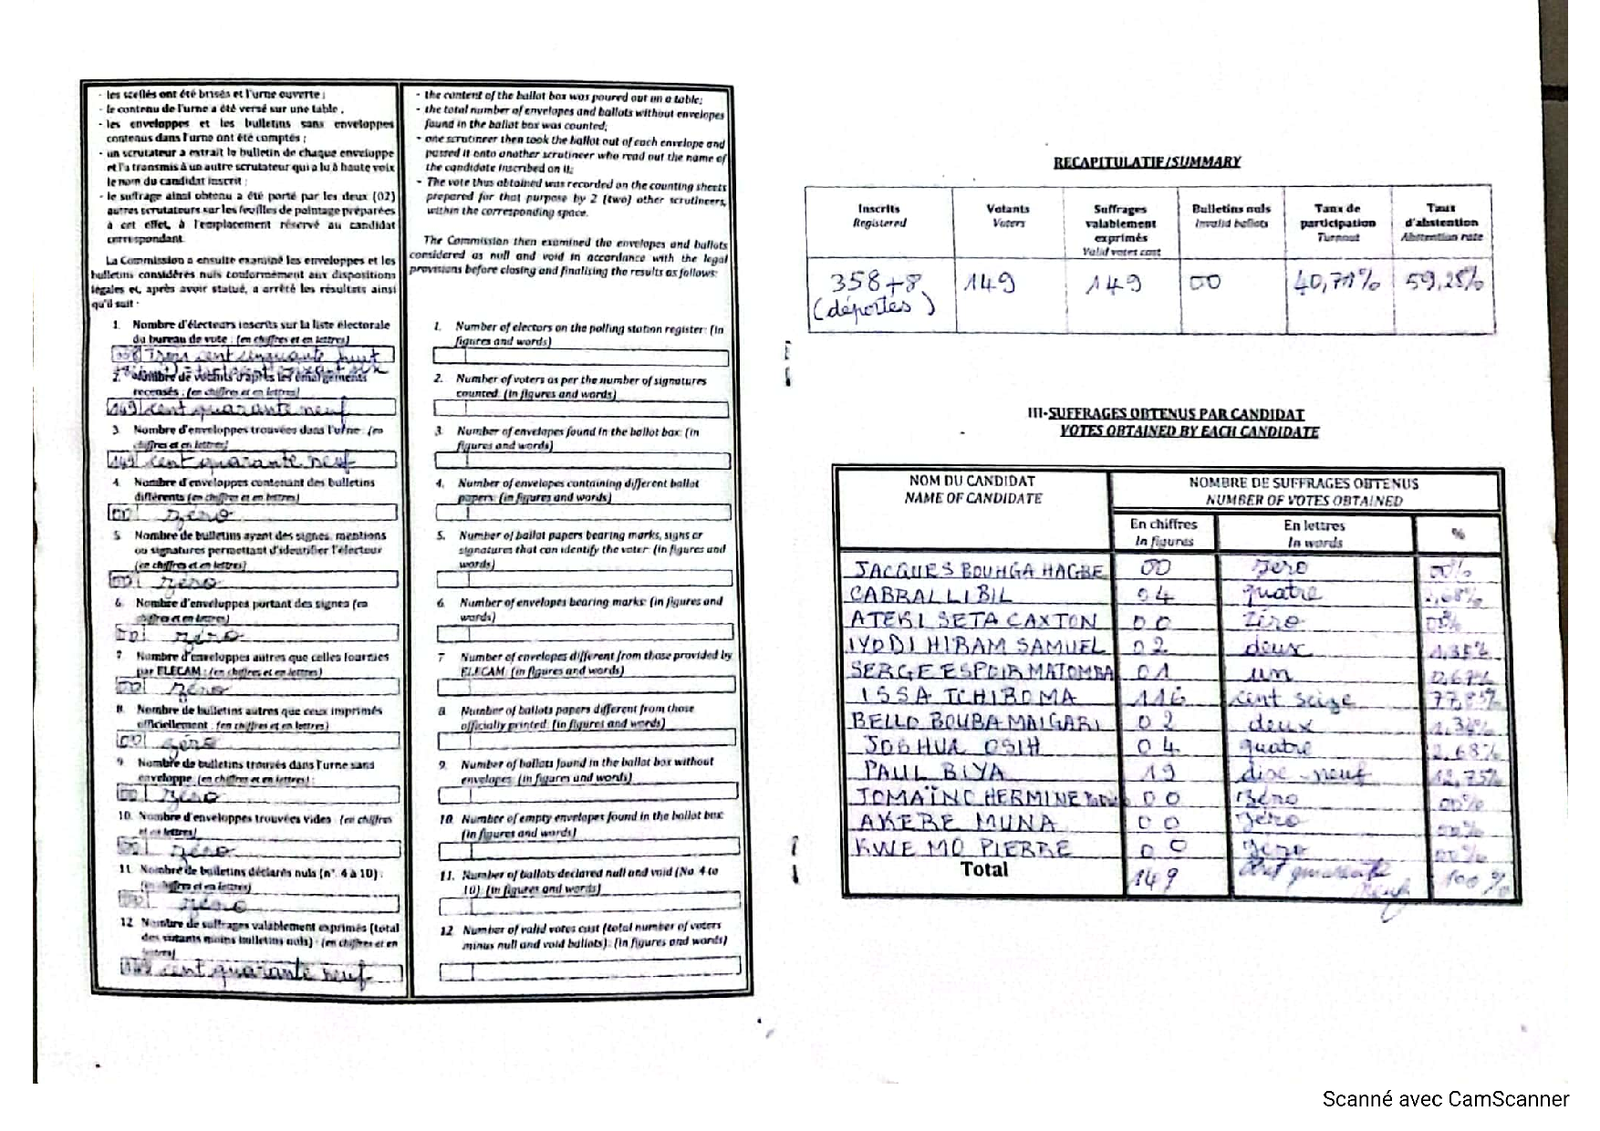 - les scellés ont été brisés et l'urne ouverte ;
- le contenu de l'urne a été versé sur une table ,
- les enveloppes et les bulletins sans enveloppes
contenus dans l'urne ont été comptés ;
- un scrutateur a extrait le bulletin de chaque enveloppe
et l'a transmis à un autre scrutateur qui a lu à haute voix
le nom du candidat inscrit ;
- le suffrage ainsi obtenu a été porté par les deux (02)
autres scrutateurs sur les feuilles de pointage préparées
à cet effet, à l'emplacement réservé au candidat
correspondant.
La Commission a ensuite examiné les enveloppes et les
bulletins considérés nuls conformément aux dispositions
légales et, après avoir statué, a arrêté les résultats ainsi
qu'il suit :
1. Nombre d'électeurs inscrits sur la liste électorale
du bureau de vote : (en chiffres et en lettres)
358 Trois cent cinquante huit
2. Nombre de votants d'après les émargements
recensés : (en chiffres et en lettres)
149 cent quarante neuf
3. Nombre d'enveloppes trouvées dans l'urne : (en
chiffres et en lettres)
149 cent quarante neuf
4. Nombre d'enveloppes contenant des bulletins
différents (en chiffres et en lettres)
00 zéro
5. Nombre de bulletins ayant des signes, mentions
ou signatures permettant d'identifier l'électeur
(en chiffres et en lettres)
00 zéro
6. Nombre d'enveloppes portant des signes (en
chiffres et en lettres)
00 zéro
7. Nombre d'enveloppes autres que celles fournies
par ELECAM : (en chiffres et en lettres)
00 zéro
8. Nombre de bulletins autres que ceux imprimés
officiellement : (en chiffres et en lettres)
00 zéro
9. Nombre de bulletins trouvés dans l'urne sans
enveloppe : (en chiffres et en lettres) :
00 zéro
10. Nombre d'enveloppes trouvées vides : (en chiffres
et en lettres)
00 zéro
11. Nombre de bulletins déclarés nuls (n°. 4 à 10) :
(en chiffres et en lettres)
00 zéro
12. Nombre de suffrages valablement exprimés (total
des votants moins bulletins nuls) : (en chiffres et en
lettres)
149 cent quarante neuf
- the content of the ballot box was poured out on a table;
- the total number of envelopes and ballots without envelopes
found in the ballot box was counted;
- one scrutineer then took the ballot out of each envelope and
passed it onto another scrutineer who read out the name of
the candidate inscribed on it;
- The vote thus obtained was recorded on the counting sheets
prepared for that purpose by 2 (two) other scrutineers,
within the corresponding space.
The Commission then examined the envelopes and ballots
considered as null and void in accordance with the legal
provisions before closing and finalising the results as follows:
1. Number of electors on the polling station register: (in
figures and words)
2. Number of voters as per the number of signatures
counted: (in figures and words)
3. Number of envelopes found in the ballot box: (in
figures and words)
4. Number of envelopes containing different ballot
papers: (in figures and words)
5. Number of ballot papers bearing marks, signs or
signatures that can identify the voter: (in figures and
words)
6. Number of envelopes bearing marks: (in figures and
words)
7 Number of envelopes different from those provided by
ELECAM: (in figures and words)
8 Number of ballots papers different from those
officially printed: (in figures and words)
9. Number of ballots found in the ballot box without
envelopes: (in figures and words)
10. Number of empty envelopes found in the ballot box:
(in figures and words)
11. Number of ballots declared null and void (No. 4 to
10): (in figures and words)
12 Number of valid votes cast (total number of voters
minus null and void ballots): (in figures and words)
RECAPITULATIF/SUMMARY
Inscrits Votants Suffrages valablement exprimés Bulletins nuls Taux de participation Taux d'abstention
Registered Voters Valid votes cast Invalid ballots Turnout Abstention rate
358+8 149 149 00 40,71% 59,28%
(déportés)
III-SUFFRAGES OBTENUS PAR CANDIDAT
VOTES OBTAINED BY EACH CANDIDATE
NOM DU CANDIDAT NOMBRE DE SUFFRAGES OBTENUS
NAME OF CANDIDATE NUMBER OF VOTES OBTAINED
En chiffres En lettres %
In figures In words
JACQUES BOUHGA HAGBE 00 zero 00%
CABRAL LIBIL 04 quatre 2,68%
ATEKI SETA CAXTON 00 zéro 00%
IYODI HIRAM SAMUEL 02 deux 1,34%
SERGE ESPOIR MATOMBA 01 un 0,67%
ISSA TCHIROMA 116 cent seize 77,85%
BELLO BOUBA MAIGARI 02 deux 1,34%
JOSHUA OSIH 04 quatre 2,68%
PAUL BIYA 19 dix-neuf 12,75%
TOMAÏNO HERMINE 00 zéro 00%
AKERE MUNA 00 zéro 00%
KWEMO PIERRE 00 zero 00%
Total 149 Cent quarante neuf 100%
Scanné avec CamScanner